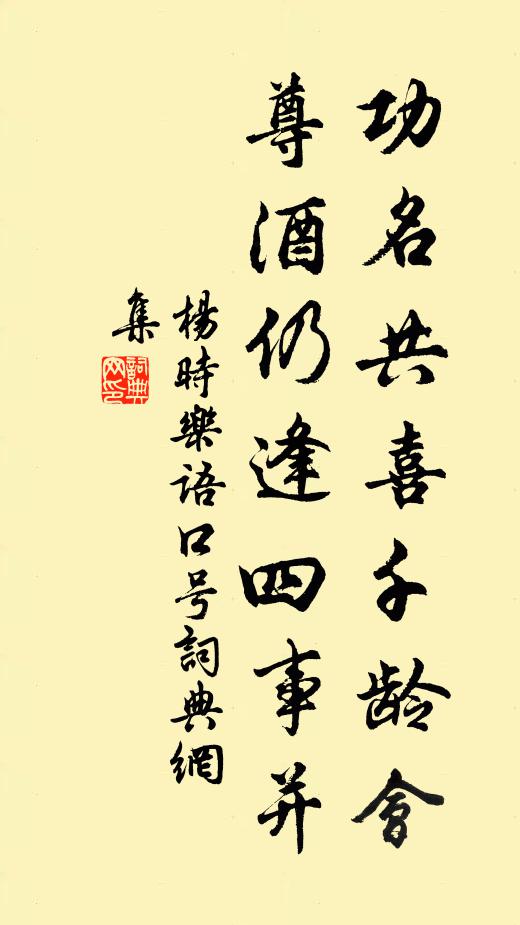 功名共喜千龄會
尊酒仍逢四事并
楊時樂语口号詞典網
集
詞典
网印